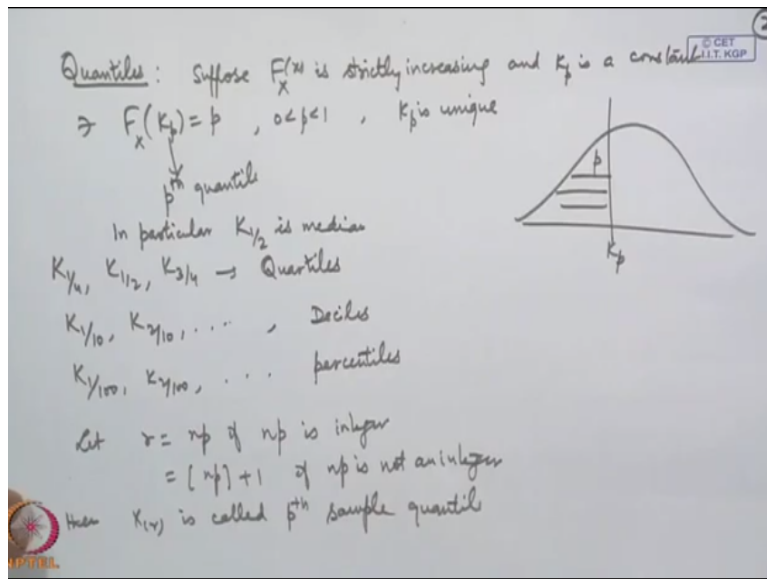 2
© CET
I.I.T. KGP
Quantiles : Suppose F_X(x) is strictly increasing and K_p is a constant
∋ F_X(K_p) = p , 0<p<1 , K_p is unique
p
K_p
pth quantile
In particular K_1/2 is median
K_1/4, K_1/2, K_3/4 → Quartiles
K_1/10, K_2/10, .... , Deciles
K_1/100, K_2/100, . . . percentiles
Let r = np if np is integer
= [np] + 1 if np is not an integer
Then X(r) is called pth sample quantile
NPTEL